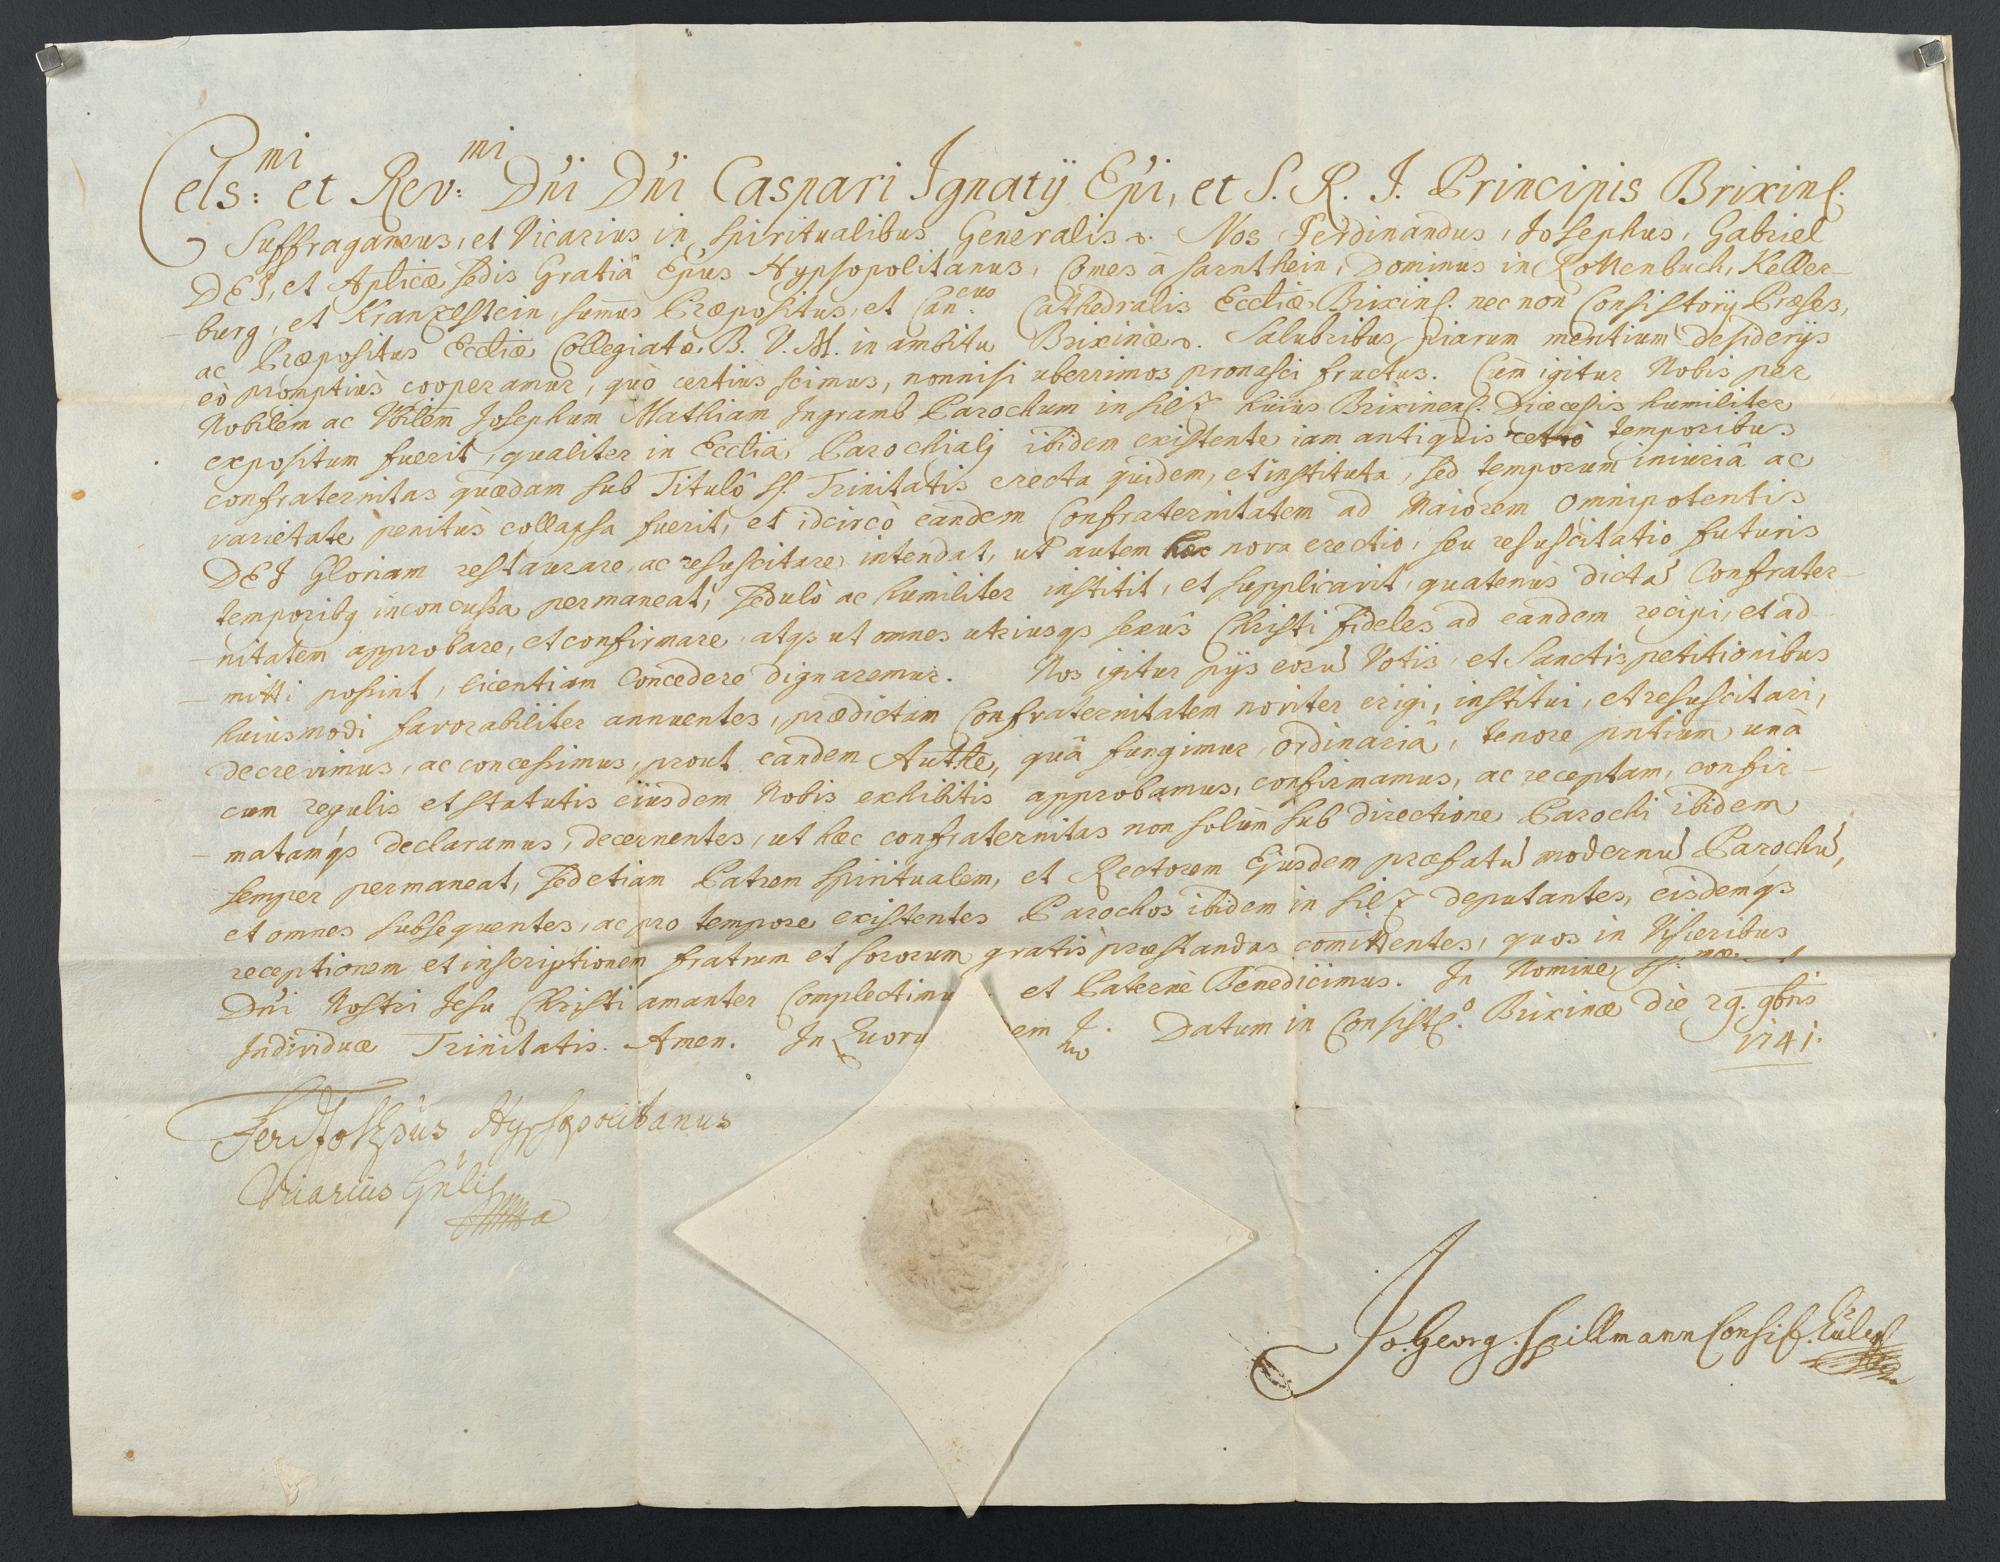 Cels:mi et Rev:mi Dn̄i Dn̄i Caspari Ignatÿ Epi, et S. R. I. Principis Brixins.
Suffraganeus, et Vicarius in Spiritualibus Generalis. Nos Ferdinandus, Josephus, Gabriel
DEI, et Aplicæ Sedis Gratiâ Epus Hypsopolitanus, Comes â Sarnthein, Dominus in Rottenbuch, Keller-
-burg, et Kranzestein, sum̄us Præpositus, et Can:cus Cathedralis Eccliæ Brixins. nec non Consistorÿ Præses,
ac Præpositus Eccliæ Collegiatæ B. V. M. in ambitu Brixinæ. Salubribus piarum mentium desiderÿs
eò promptiùs cooperamur, quò certius scimus, nonnisi uberrimos pronasci fructus. Cùm igitur Nobis per
Nobilem ac Josephum Mathiam Ingramb Parochum in Silz huius Brixinens. Diœcesis humiliter
expositum fuerit, qualiter in Ecclia Parochiali ibidem existente iam antiquis retrò temporibus
confraternitas quædam sub Titulô SS. Trinitatis erecta quidem, et instituta, sed temporum iniuriâ ac
varietate penitùs collapsa fuerit, et idcircò eandem Confraternitatem ad Maiorem Omnipotentis
DEI Gloriam restaurare, ac resuscitare intendat, ut autem hæc nova erectio, seu resuscitatio futuris
temporibq inconcussa permaneat, sedulò ac humiliter institit, et supplicavit, quatenùs dictā Confrater-
-nitatem approbare, et confirmare atqs ut omnes utriusqs sexûs Christi fideles ad eandem recipi, et ad-
-mitti possint, licentiam Concedere dignaremur. Nos igitur pijs eorū Votis, et Sanctis petitionibus
huiusmodi favorabiliter annuentes, prædictam Confraternitatem noviter erigi, institui, et resuscitari,
decrevimus, ac concessimus, prout eandem Authe, quâ fungimur, ordinariâ, tenore pn̄tium unà
cum regulis et statutis eiusdem Nobis exhibitis approbamus, confirmamus, ac receptam, confir-
-matamqs declaramus, decernentes, ut hæc confraternitas non solùm sub directione Parochi ibidem
semper permaneat, sed etiam Patrem Spiritualem, et Rectorem Ejusdem præfatū modernū Parochū,
et omnes subsequentes, ac pro tempore existentes Parochos ibidem in Silz deputantes, eisdemqs
receptionem et inscriptionem fratrum et sororum gratis præstandas com̄ittentes, quos in Visceribus
Dn̄i Nostri Jesu Christi amanter Complectimu et Paternè Benedicimus. In Nomine SS:mæ et
Individuæ Trinitatis. Amen. In Quoru em Datum in Consist:o Brixinæ die 29. 9bris
1741.
Ferd Josephus Hypsopolitanus
Vicarius Gn̄lis
Jo. Georg. Spillmann Consist.